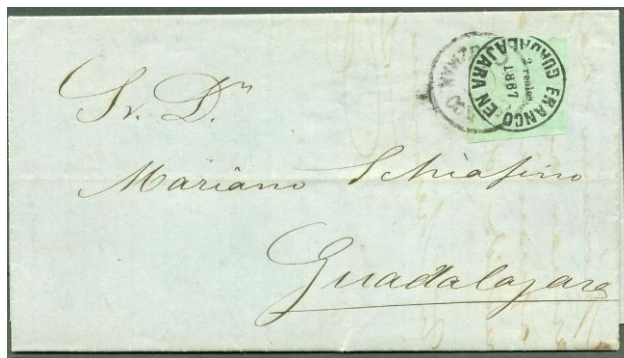 FRANCO EN GUADALAJARA
2 reales
1867
Sr. Dn
Mariano Schiafino
Guadalajara